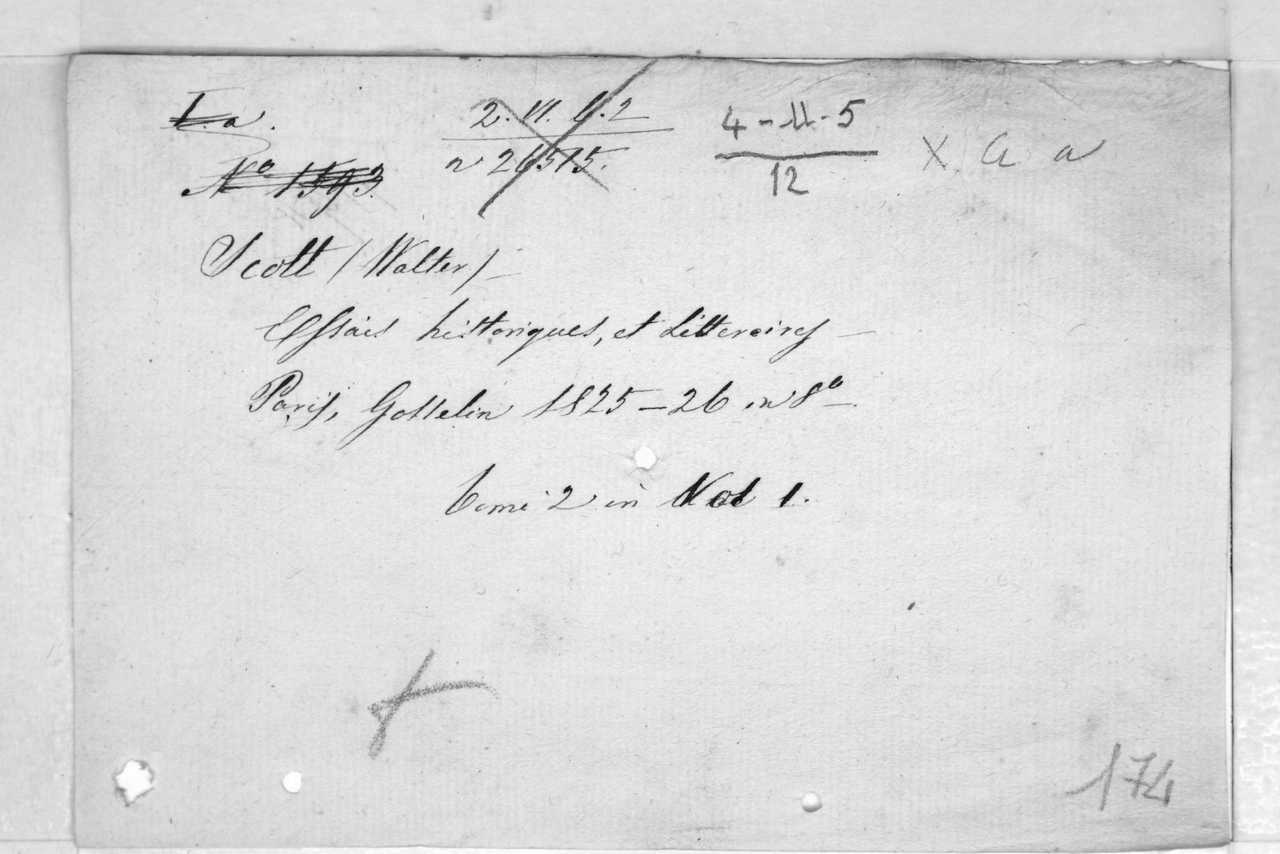 L. a.
2. VI. G. 2
4-11-5
X a a
Nº 1593.
n 26515.
12
Scott (Walter) –
Essais historiques, et Litteraires –
Paris, Gosselin 1825–26 in 8º.
tomi 2 in Vol 1.
174